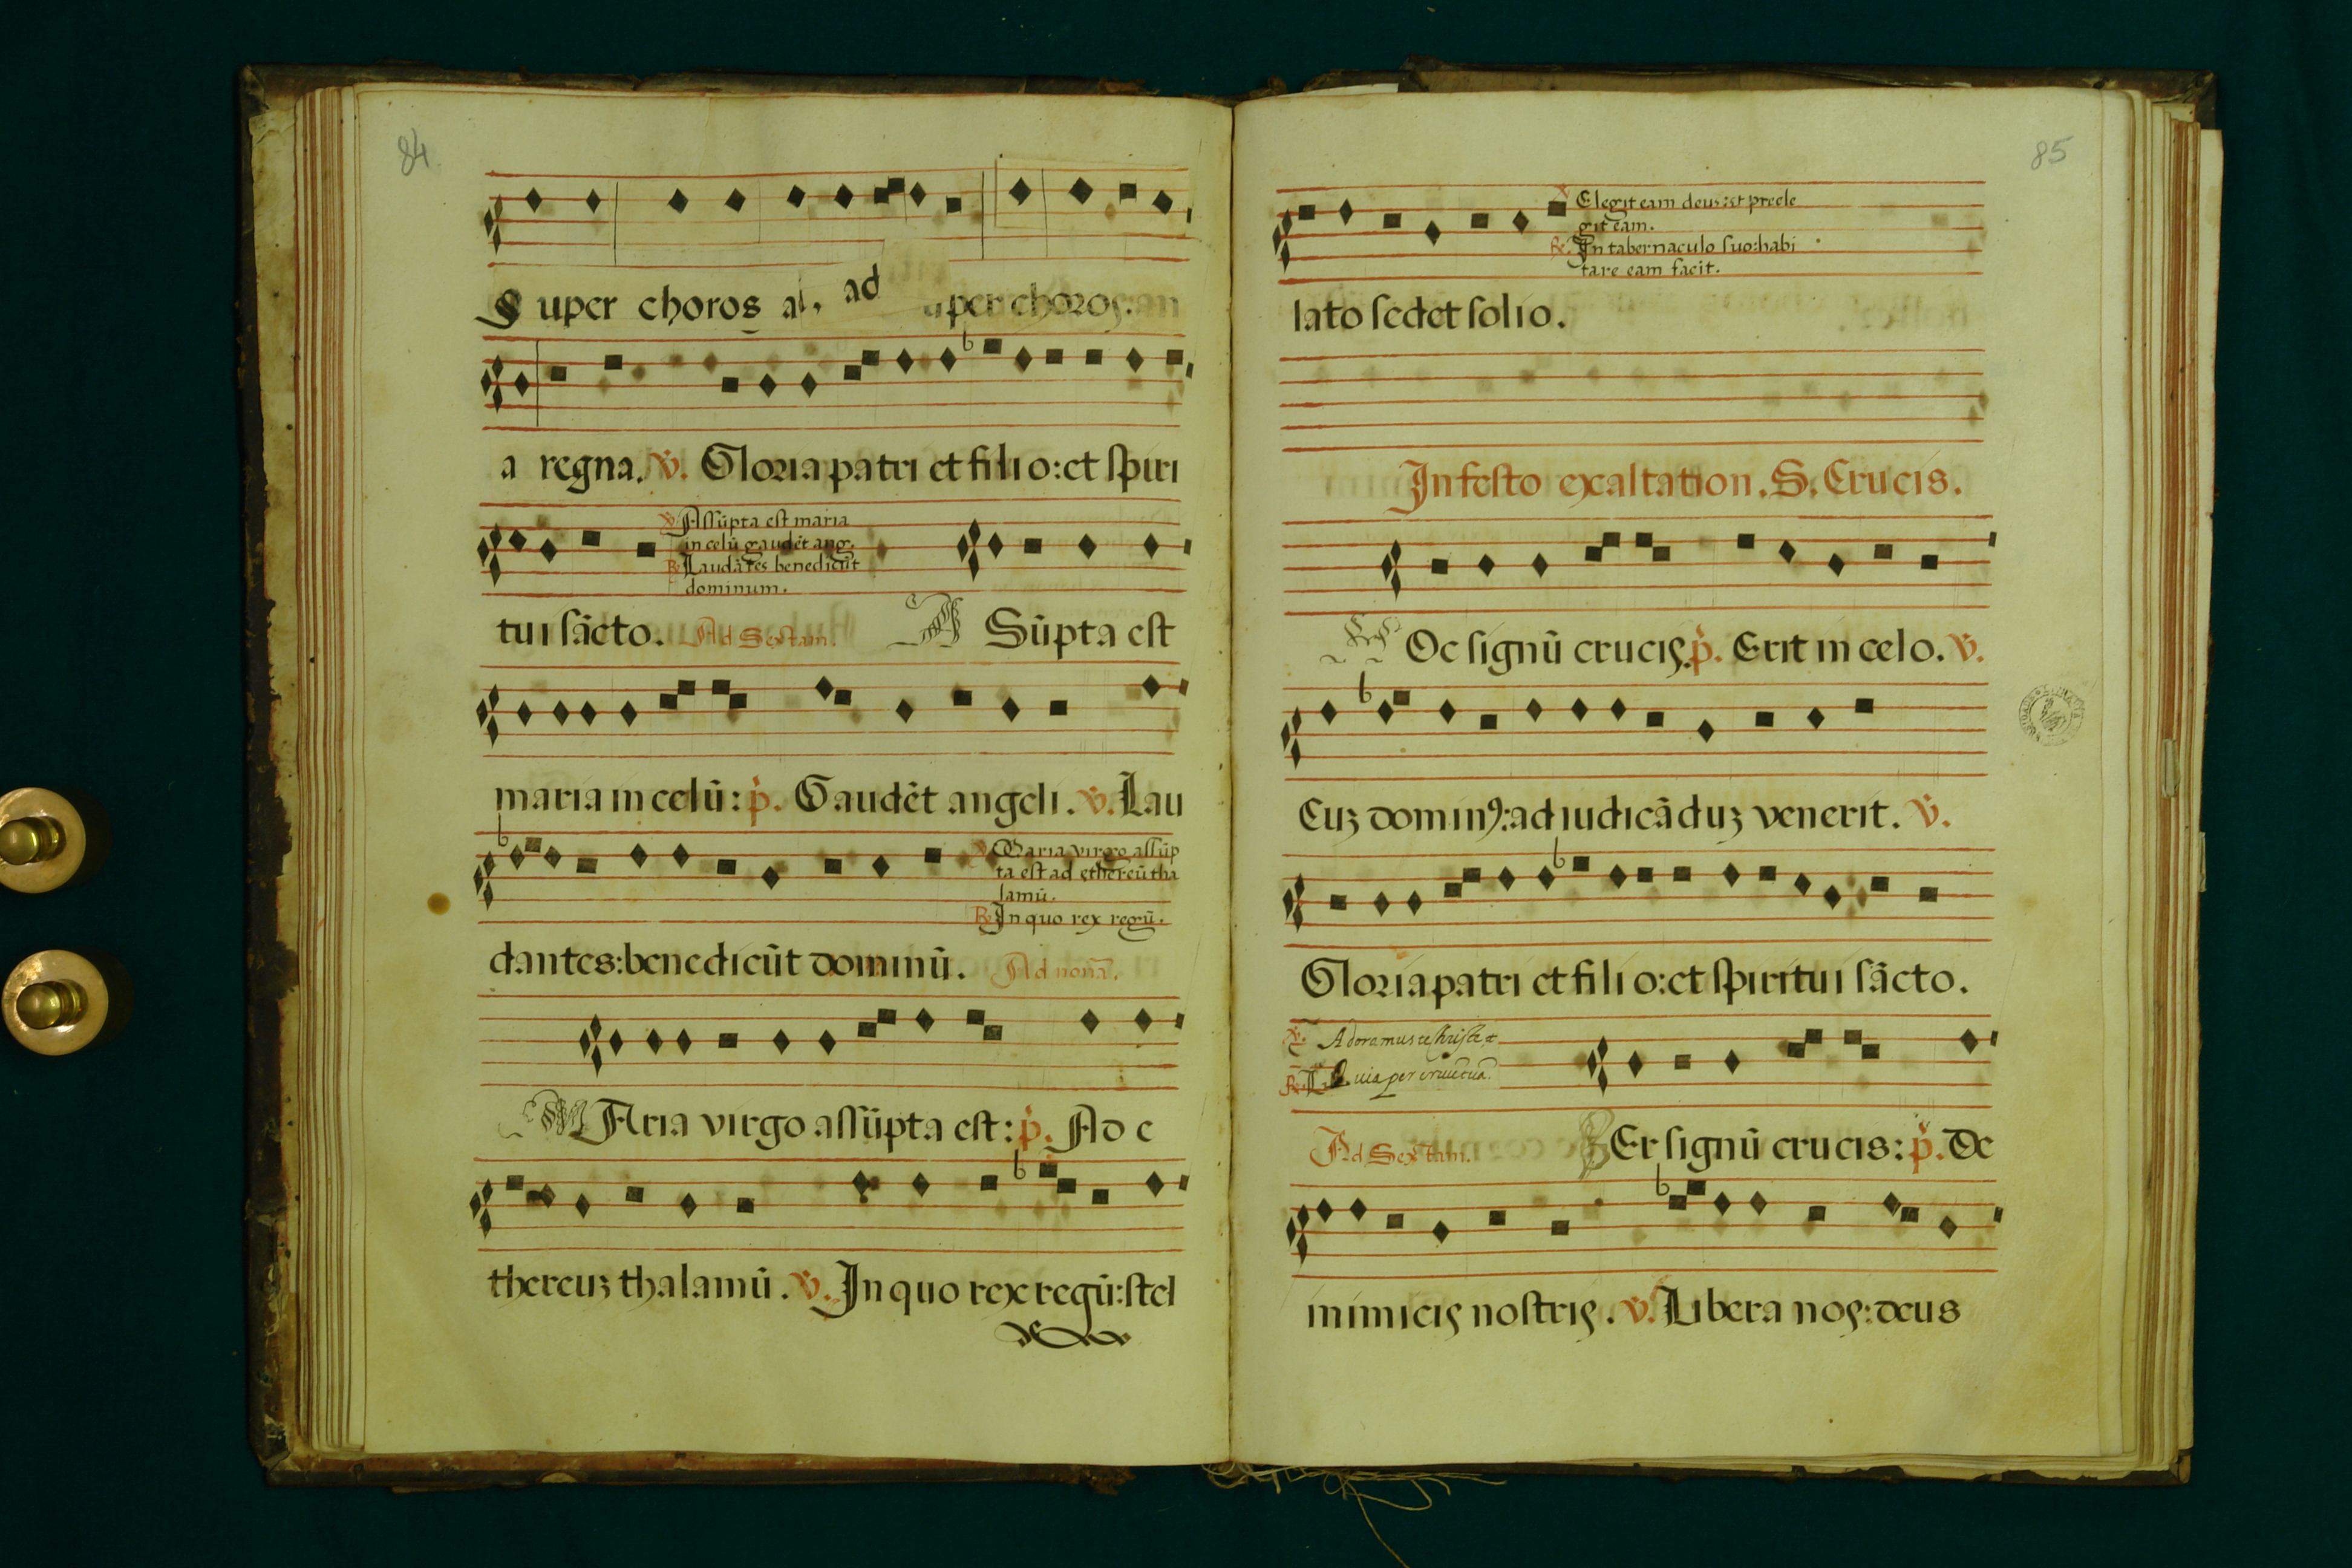 84
Super choros al, ad uper choros: an
a regna. v. Gloria patri et filio: et spiri
v Assūpta est maria
in celū gaudēt ang.
R. Laudātes benedicūt
dominum.
tui sācto. Ad Sextam. A Sūpta est
maria in celū: p. Gaudēt angeli. v. Lau
v Maria virgo assūp
ta est ad ethereū tha
lamū.
R. In quo rex regū.
dantes: benedicūt dominū. Ad nonā.
MAria virgo assūpta est: p. Ad e
thereuz thalamū. v. In quo rex regū: stel
85
v Elegit eam deus: et preele
git eam.
R. In tabernaculo suo: habi
tare eam facit.
lato sedet solio.
In festo exaltation. S. Crucis.
HOc signū crucis. p. Erit in celo. v.
Cuz dominꝰ: ad iudicāduz venerit. v.
Gloria patri et filio: et spiritui sācto.
v. Adoramus te Christe, et
R. Quia per crucē tuā.
Ad Sextam. PEr signū crucis: p. De
inimicis nostris. v. Libera nos: deus